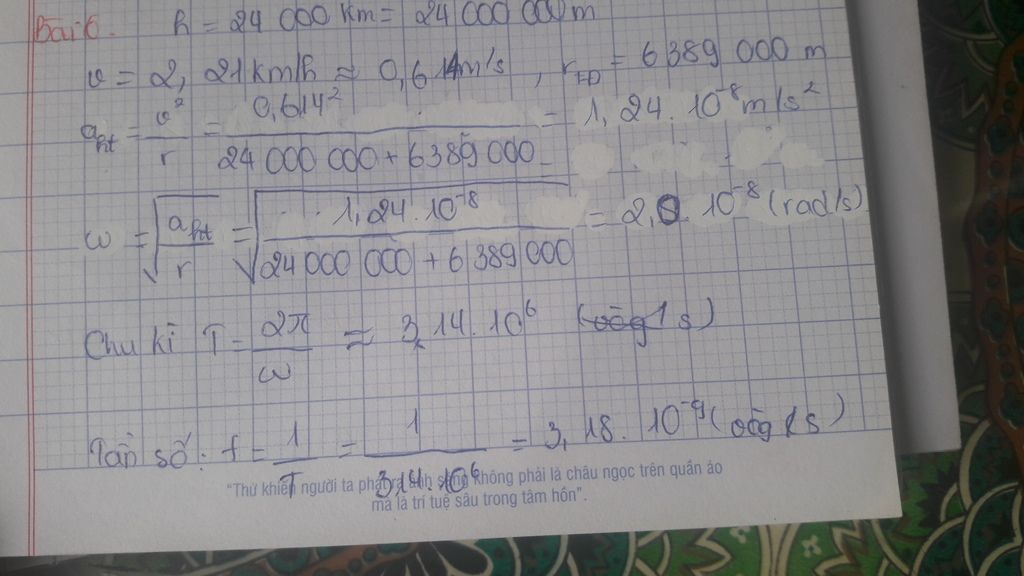 Bài 6. h = 24 000 km = 24 000 000 m
v = 2,21 km/h ≈ 0,614 m/s , rTĐ = 6389 000 m
aht = v²/r = 0,614²/(24 000 000 + 6389 000) = 1,24. 10⁻⁸ m/s²
ω = √(aht/r) = √(1,24. 10⁻⁸/(24 000 000 + 6 389 000)) = 2,0. 10⁻⁸ (rad/s)
Chu kì T = 2π/ω ≈ 3,14. 10⁶ (s)
Tần số: f = 1/T = 1/(3,14. 10⁶) = 3,18. 10⁻⁹ (vòng/s)
"Thứ khiến người ta phát ra ánh sáng không phải là châu ngọc trên quần áo
mà là trí tuệ sâu trong tâm hồn".